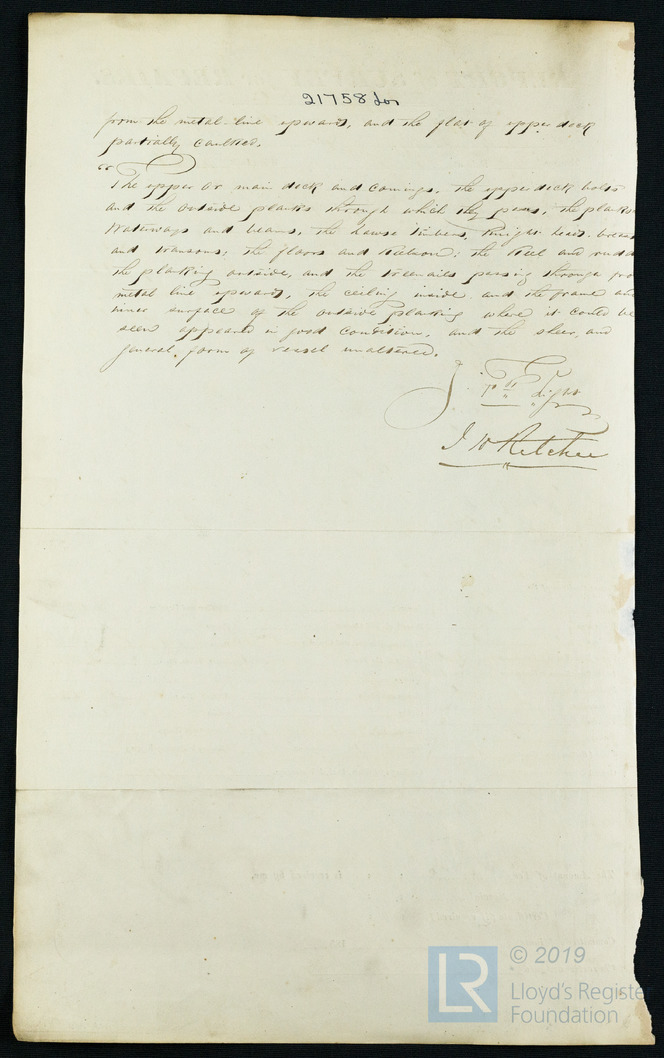 21758 Lon
from the metal line upwards, and the flat of upper deck
partially caulked.
The upper or main deck and comings, the upper deck bolts
and the outside planks through which they pass, the planks
Waterways and beams, the hawse timbers, Knight heads, breast
and transoms; the floors and keelson; the keel and rudd
the planking outside, and the treenails passing through fro
metal line upwards, the ceiling inside and the frame and
inner surface of the outside planking where it could be
seen appeared in good condition, and the sheer, and
general form of vessel unaltered.
J W Ritchie
© 2019
LR
Lloyd's Registe
Foundation